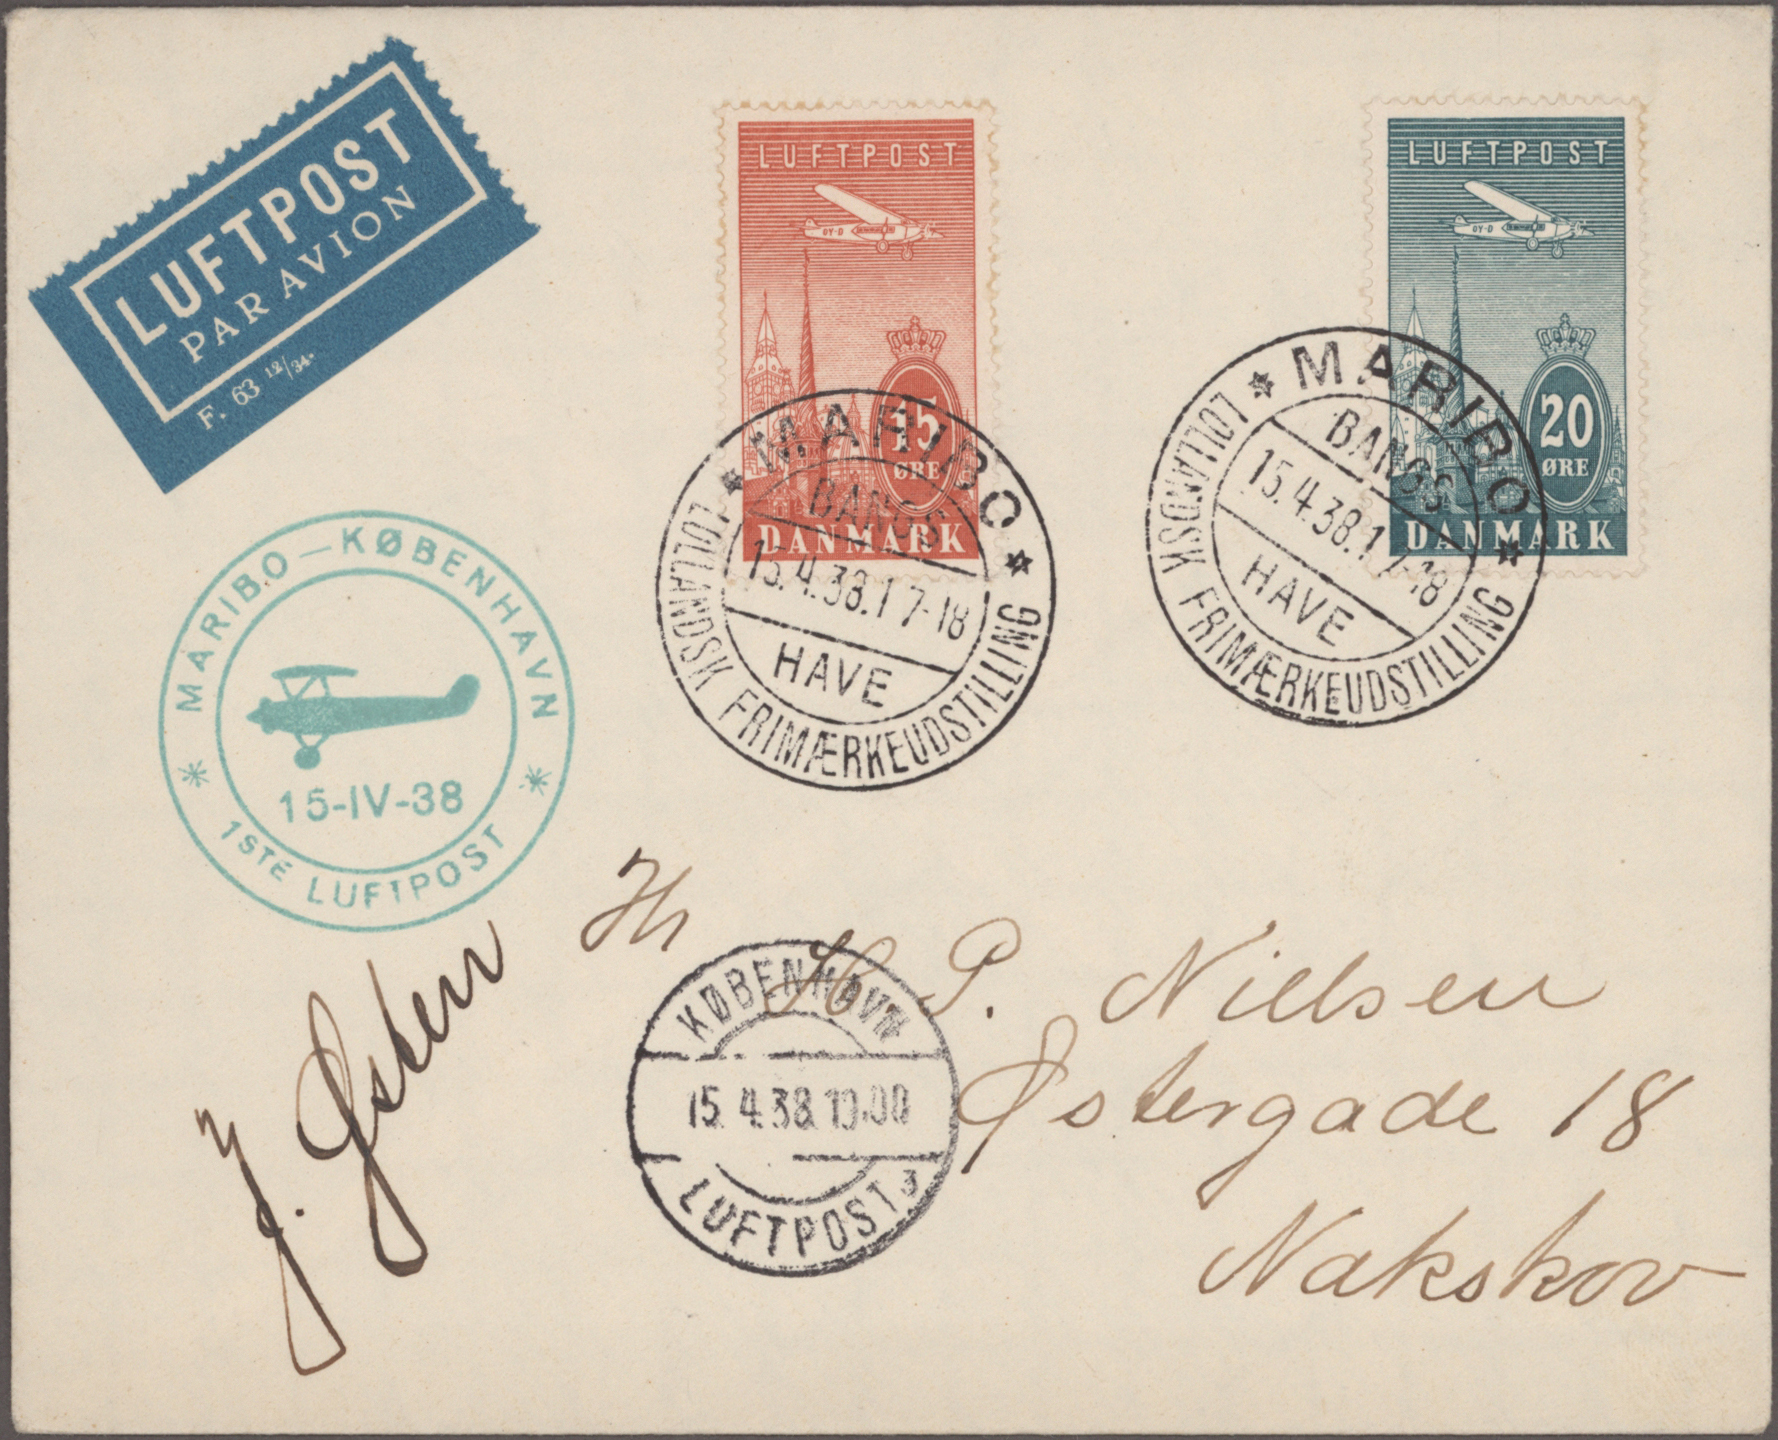 LUFTPOST
PAR AVION
F. 63 12/34.
LUFTPOST
OY-D
15
ØRE
DANMARK
LUFTPOST
OY-D
20
ØRE
DANMARK
MARIBO
BANGS
15.4.38.17-18
HAVE
LOLLANDSK FRIMÆRKEUDSTILLING
MARIBO
BANGS
15.4.38.17-18
HAVE
LOLLANDSK FRIMÆRKEUDSTILLING
MARIBO—KØBENHAVN
15-IV-38
1STE LUFTPOST
Hr
H. P. Nielsen
Østergade 18
Nakskov
KØBENHAVN
15.4.38
LUFTPOST 3